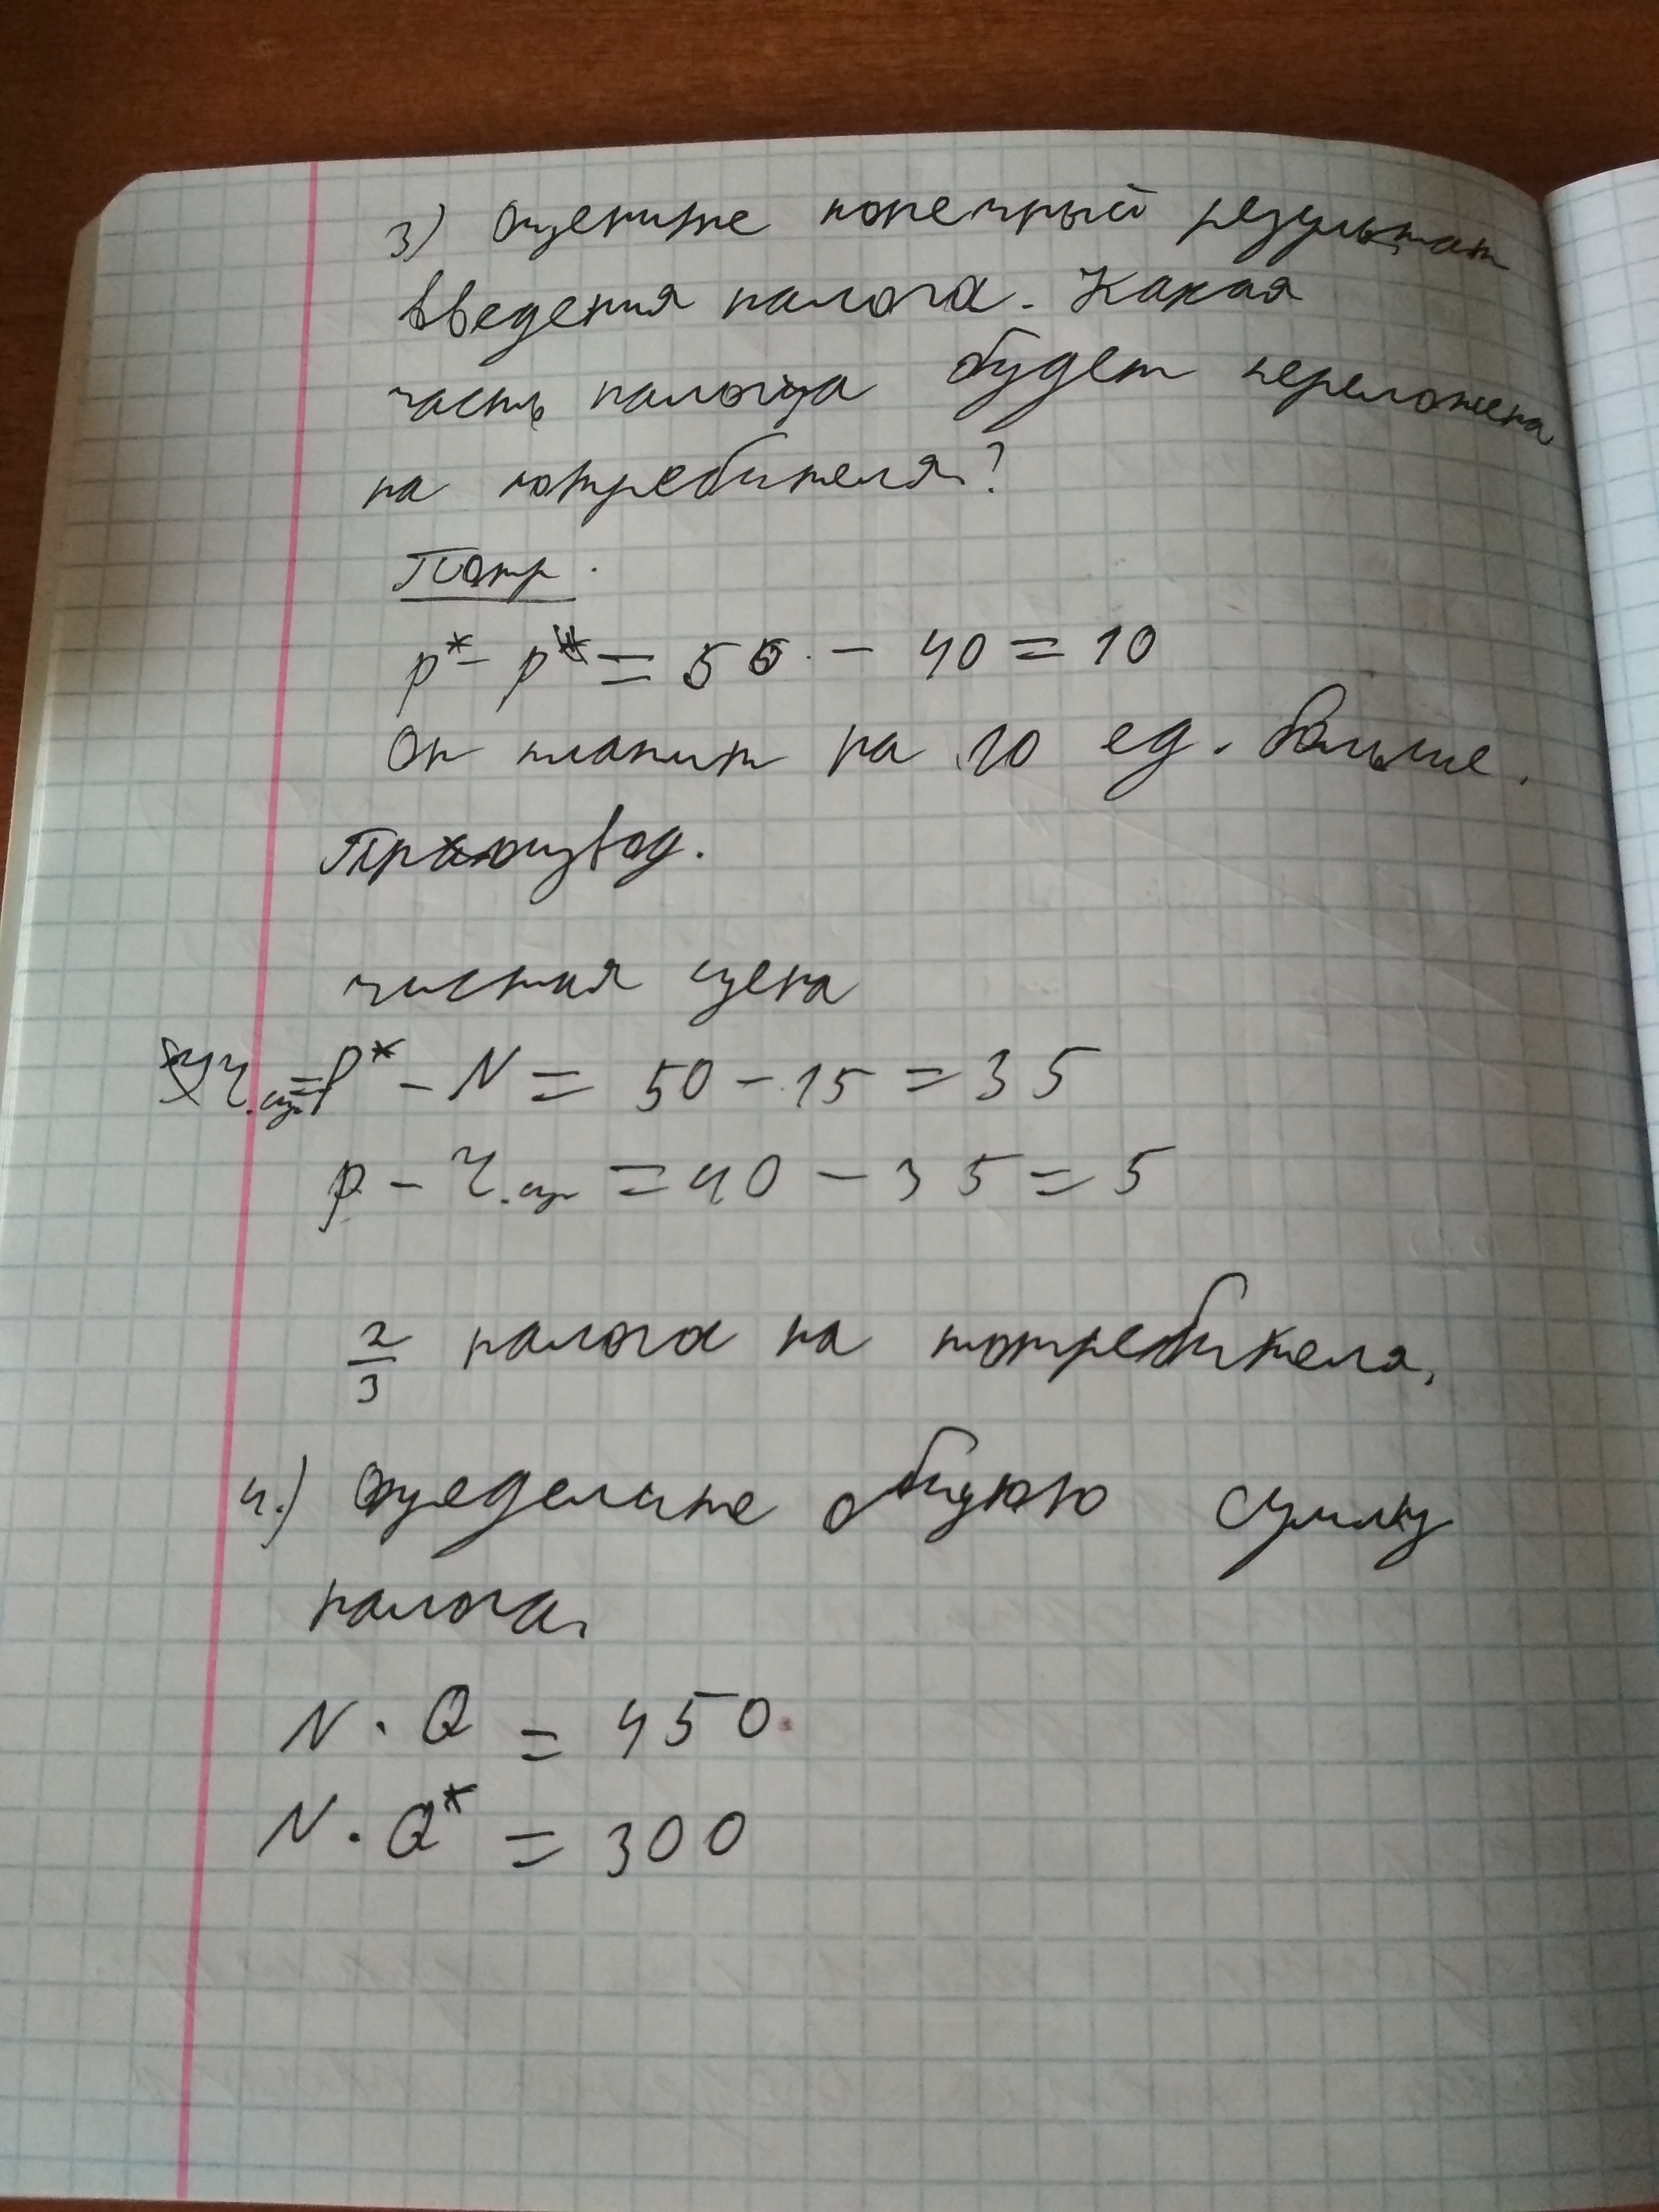 3) Оцените конечный результат
введения налога. Какая
часть налога будет переложена
на потребителя?
Потр.
p* - p = 50 - 40 = 10
Он платит на 10 ед. больше.
Производ.
чистая цена
Ч.ц = P* - N = 50 - 15 = 35
p - Ч.ц = 40 - 35 = 5
2/3 налога на потребителя.
4.) Определите общую сумму
налога.
N · Q = 450
N · Q* = 300